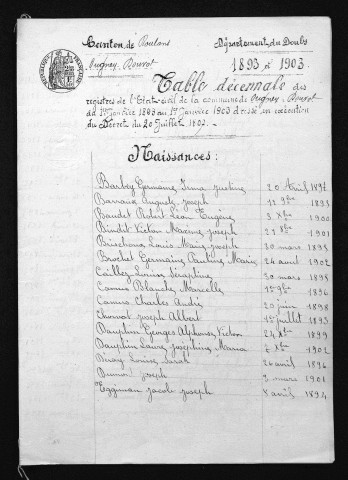 Canton de Roulans
Département du Doubs
Ougney-Rouvot
1893 à 1903
Table décennale des
registres de l'Etat-civil de la commune de Ougney-Rouvot
du 1er janvier 1893 au 1er janvier 1903 dressé en exécution
du Décret du 20 juillet 1807.
Naissances :
Barbey Germaine Irma Justine 20 Avril 1897
Joseph 12 9bre 1893
Baudet Robert Léon Eugène 3 Xbre 1900
Victor Maxime Joseph 22 8bre 1901
Louis Marie Joseph 30 mars 1895
Brochet Germaine Pauline Marie 24 avril 1902
Louise Séraphine 30 mars 1898
Camus Blanche Marcelle 15 9bre 1896
Camus Charles André 20 juin 1898
Joseph Albert 15 juillet 1893
Dauphin Georges Alphonse Victor 24 Xbre 1899
Dauphin Laure Joséphine Maria 7 Xbre 1902
Louise Sarah 26 avril 1896
Dumont Joseph 9 mars 1901
Eggiman Jacob Joseph 8 avril 1894